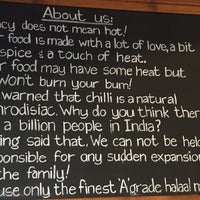 About us:
cy does not mean hot!
r food is made with a lot of love, a bit
spice & a touch of heat.
r food may have some heat but
won't burn your bum!
warned that chilli is a natural
hrodisiac. Why do you think ther
a billion people in India?
ing said that. We can not be hel
ponsible for any sudden expansion
the family!
use only the finest 'A' grade halal m